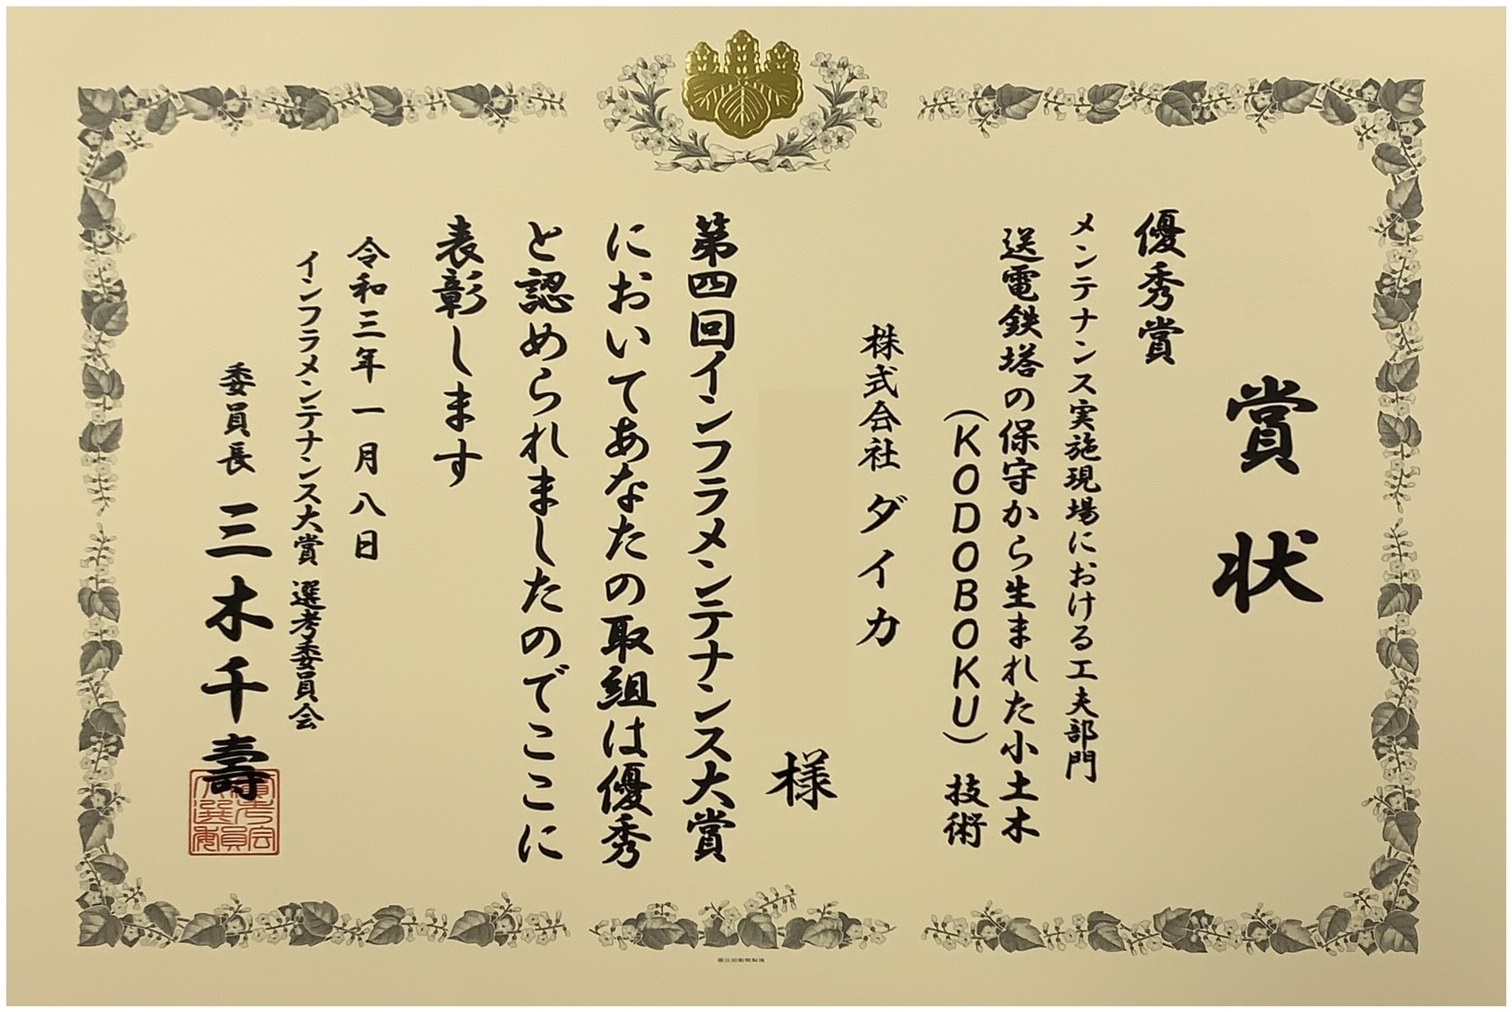 賞状
優秀賞
メンテナンス実施現場における工夫部門
送電鉄塔の保守から生まれた小土木
（KODOBOKU）技術
株式会社 ダイカ
様
第四回インフラメンテナンス大賞
においてあなたの取組は優秀
と認められましたのでここに
表彰します
令和三年一月八日
インフラメンテナンス大賞 選考委員会
委員長 三木千壽